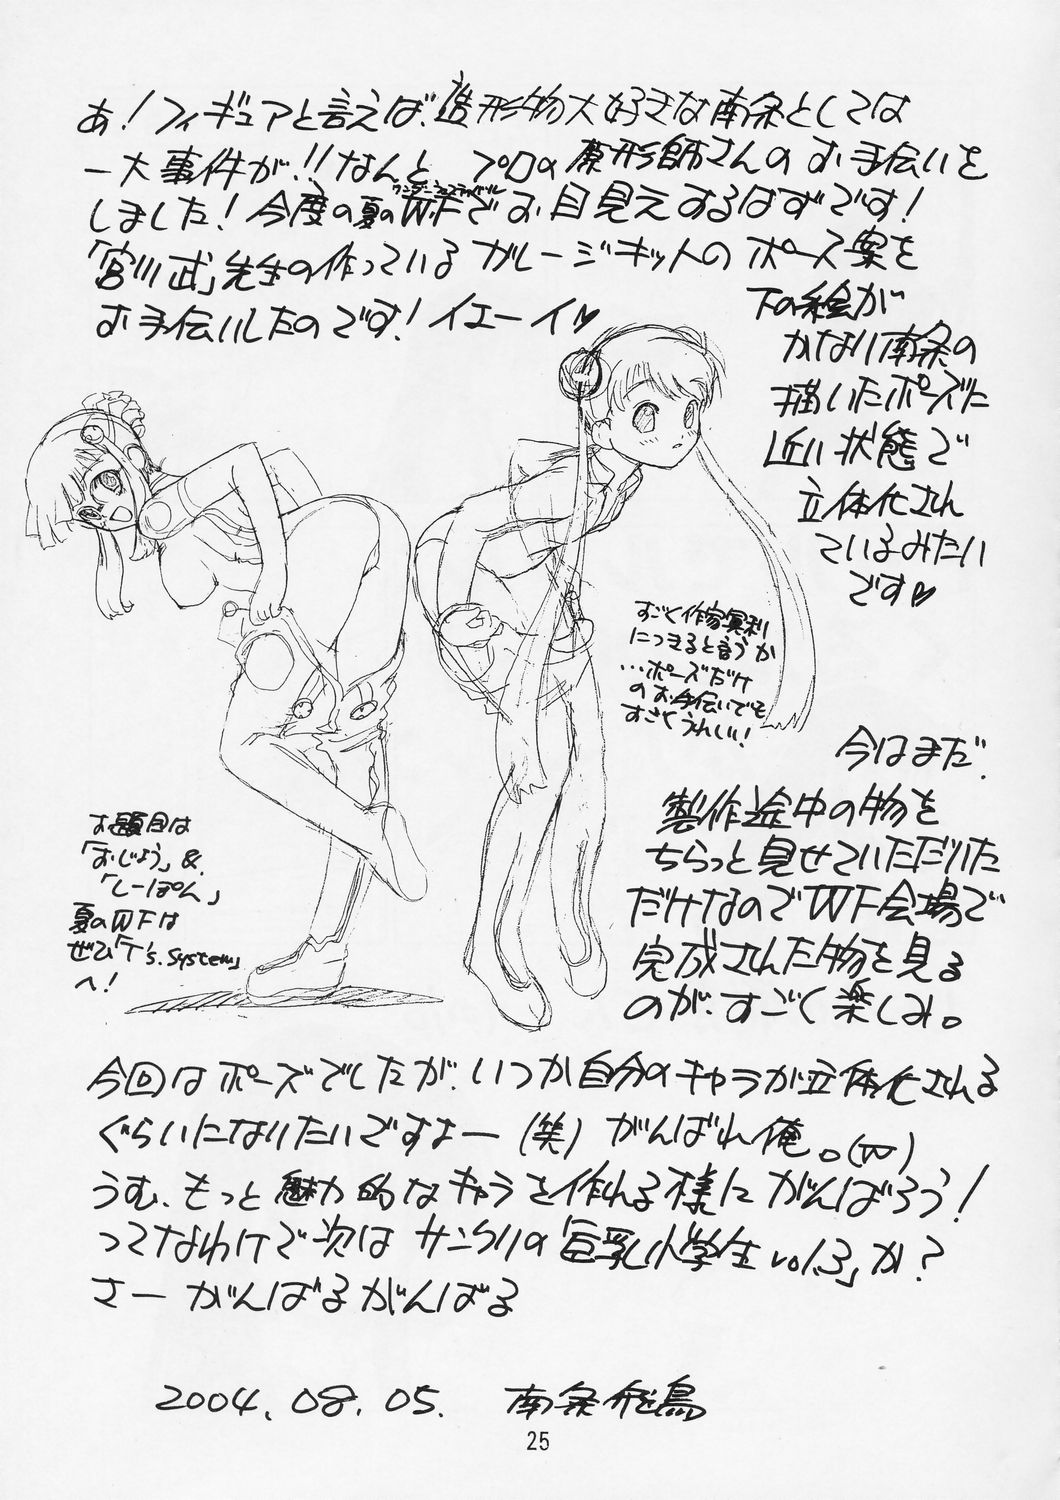 あ!フィギュアと言えば、造形物大好きな南条としては
一大事件が!!なんと プロの原形師さんのお手伝いを
しました!今度の夏のWFでお目見えするはずです!
ワンダーフェスティバル
「宮川武」先生の作っているガレージキットのポーズ案を
お手伝いしたのです!イエーイ♡
下の絵が
かなり南条の
描いたポーズに
近い状態で
立体化され
ているみたい
です♡
すごく作家冥利
につきると言うか
…ポーズだけ
のお手伝いでも
すごくうれしい!
今はまだ、
製作途中の物を
ちらっと見せていただいた
だけなのでWF会場で
完成された物を見る
のが、すごく楽しみ。
お題目は
「おじょう」&
「しーぽん」
夏のWFは
ぜひ「T's.System」
へ!
今回はポーズでしたが、いつか自分のキャラが立体化される
ぐらいになりたいですよー(笑)がんばれ俺。(π)
うむ、もっと魅力的なキャラを作れる様にがんばろう!
ってなわけで次はサンクリの「巨乳小学生vol.3」か?
さーがんばるがんばる
2004.08.05. 南条飛鳥
25